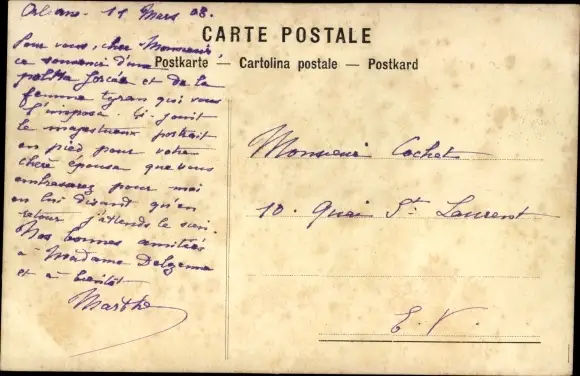 Orléans. 11 Mars 08.
CARTE POSTALE
Postkarte — Cartolina postale — Postkard
Pour vous, cher Monsieur,
ce souvenir d'une
petite forcée et de la
femme tyran qui vous
l'imposa. Ci-joint
le majestueux portrait
en pied pour votre
chère épouse que vous
embrasserez pour moi
en lui disant qu'en
retour j'attends le sien.
Mes bonnes amitiés
à Madame Delozanne
et à bientôt
Marthe
Monsieur Cochet
10. Quai St Laurent
E. V.